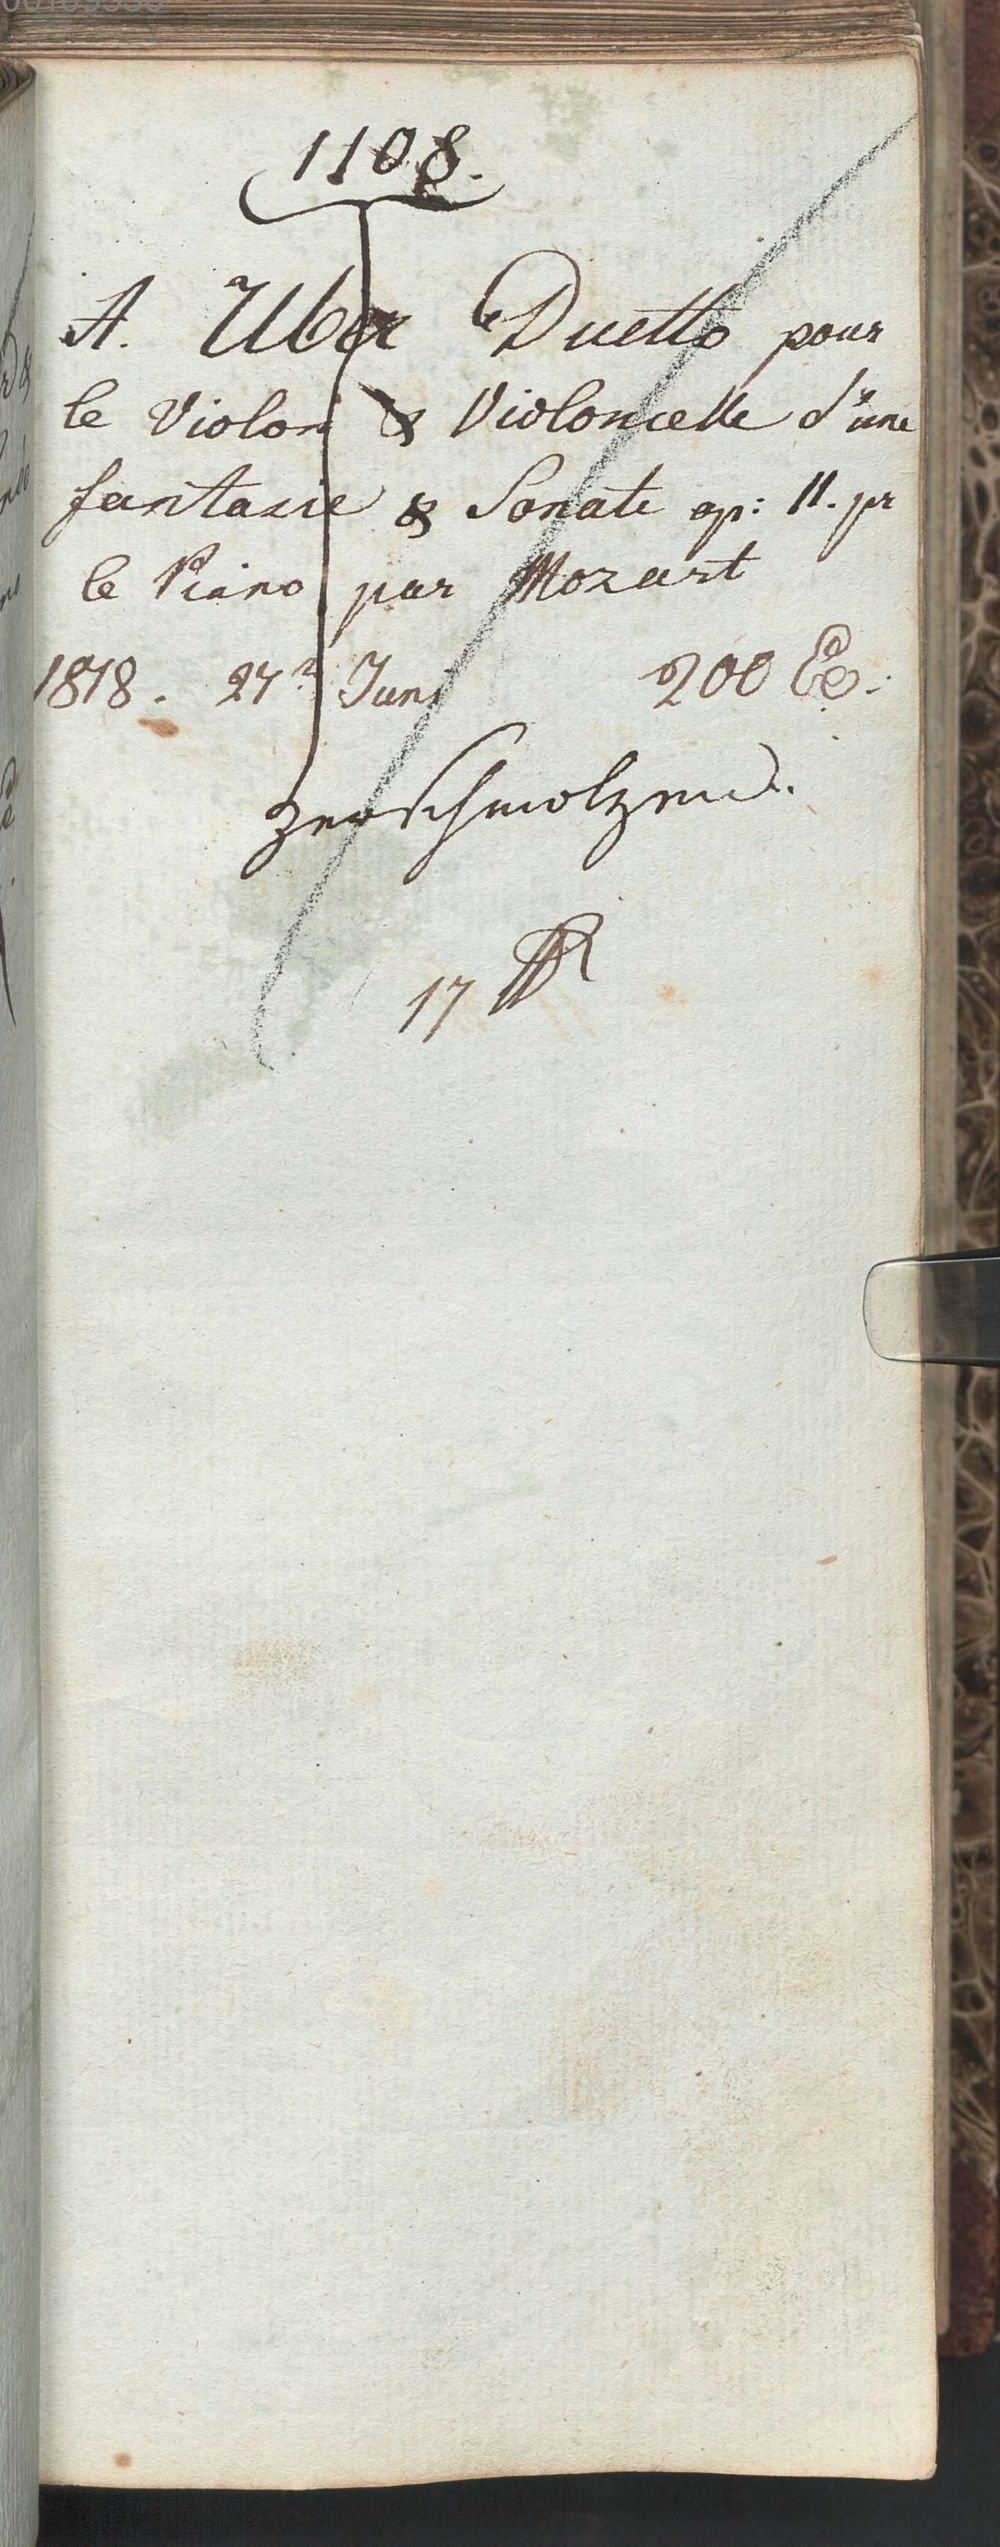 1108.
A. Uber Duetto pour
le Violon & Violoncelle d'une
fantasie & Sonate op: 11. pr
le Piano par Mozart
1818. 27 Juni 200 Ex.
zerschmolzen.
17